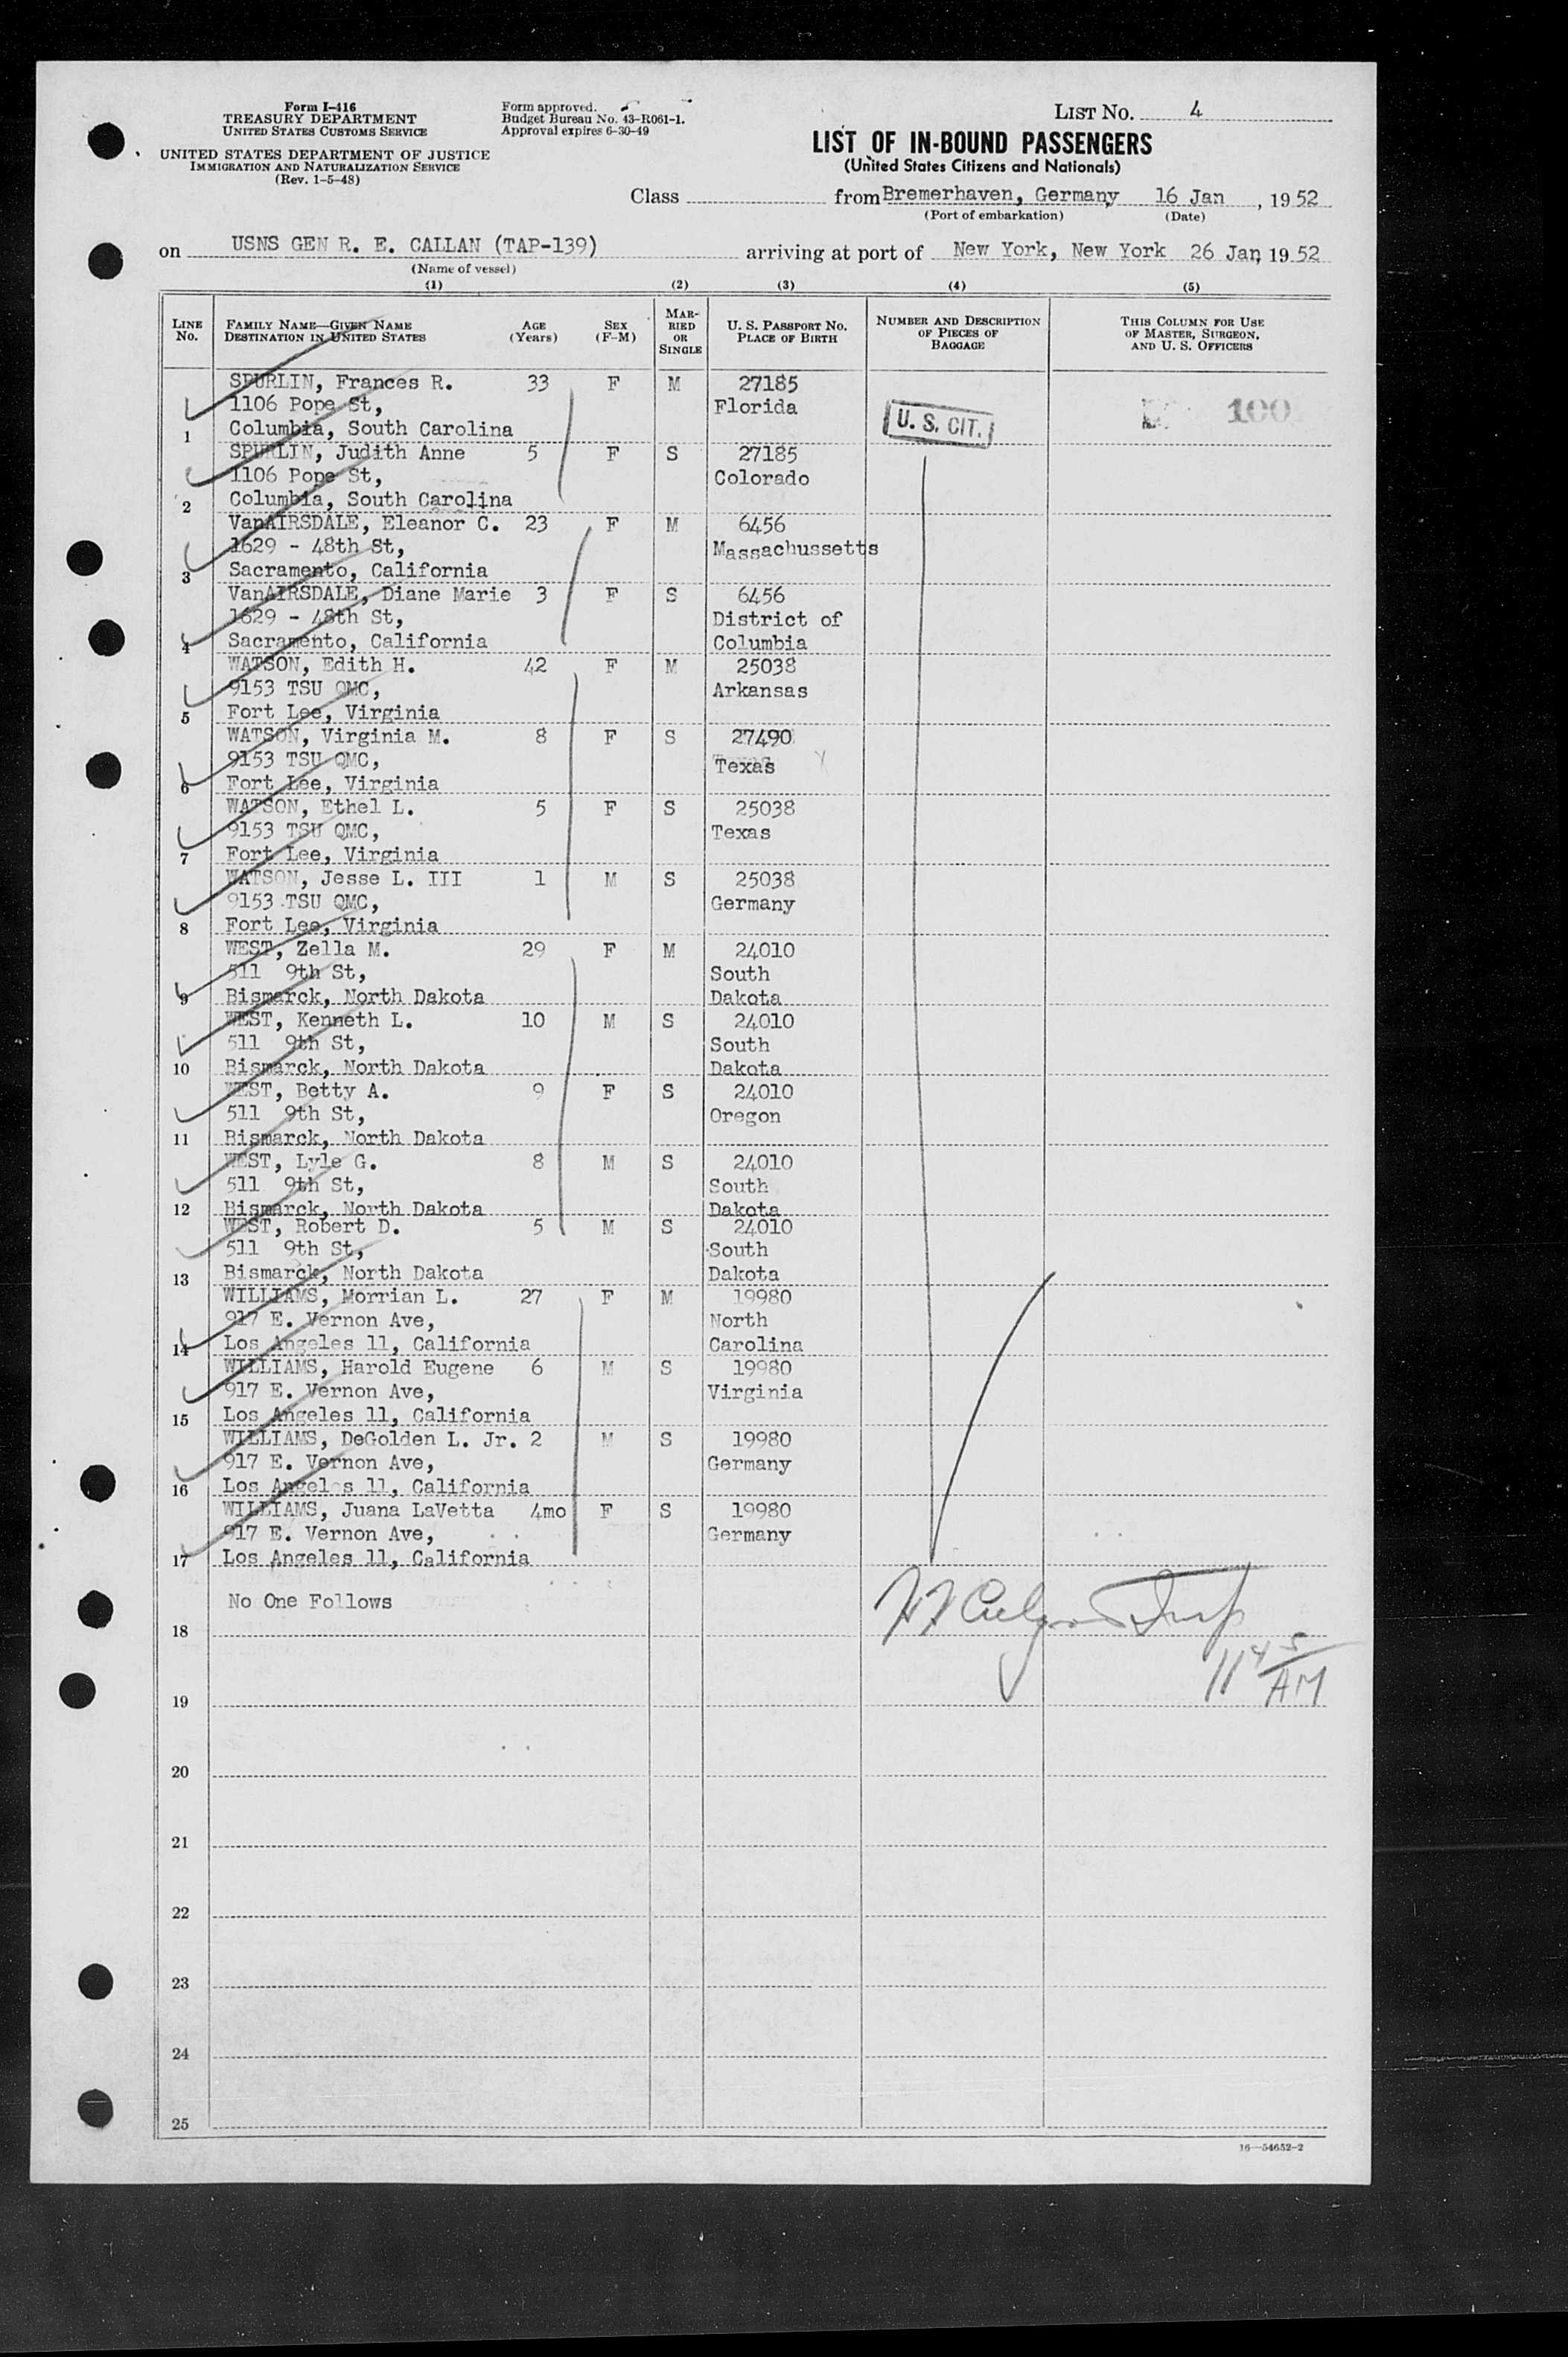 Form I-416
TREASURY DEPARTMENT
UNITED STATES CUSTOMS SERVICE
UNITED STATES DEPARTMENT OF JUSTICE
IMMIGRATION AND NATURALIZATION SERVICE
(Rev. 1-5-48)
Form approved.
Budget Bureau No. 43-R061-1.
Approval expires 6-30-49
LIST NO. 4
LIST OF IN-BOUND PASSENGERS
(United States Citizens and Nationals)
Class from Bremerhaven, Germany 16 Jan, 1952
(Port of embarkation) (Date)
on USNS GEN R. E. CALLAN (TAP-139) arriving at port of New York, New York 26 Jan, 1952
(Name of vessel)
(1) (2) (3) (4) (5)
LINE NO. FAMILY NAME—GIVEN NAME DESTINATION IN UNITED STATES AGE (Years) SEX (F-M) MARRIED OR SINGLE U. S. PASSPORT NO. PLACE OF BIRTH NUMBER AND DESCRIPTION OF PIECES OF BAGGAGE THIS COLUMN FOR USE OF MASTER, SURGEON, AND U. S. OFFICERS
SPURLIN, Frances R. 33 F M 27185
1106 Pope St, Florida U. S. CIT. 100
1 Columbia, South Carolina
SPURLIN, Judith Anne 5 F S 27185
1106 Pope St, Colorado
2 Columbia, South Carolina
VanAIRSDALE, Eleanor C. 23 F M 6456
1629 - 48th St, Massachussetts
3 Sacramento, California
VanAIRSDALE, Diane Marie 3 F S 6456
1629 - 48th St, District of
4 Sacramento, California Columbia
WATSON, Edith H. 42 F M 25038
9153 TSU QMC, Arkansas
5 Fort Lee, Virginia
WATSON, Virginia M. 8 F S 27490
9153 TSU QMC, Texas
6 Fort Lee, Virginia
WATSON, Ethel L. 5 F S 25038
9153 TSU QMC, Texas
7 Fort Lee, Virginia
WATSON, Jesse L. III 1 M S 25038
9153 TSU QMC, Germany
8 Fort Lee, Virginia
WEST, Zella M. 29 F M 24010
511 9th St, South
9 Bismarck, North Dakota Dakota
WEST, Kenneth L. 10 M S 24010
511 9th St, South
10 Bismarck, North Dakota Dakota
WEST, Betty A. 9 F S 24010
511 9th St, Oregon
11 Bismarck, North Dakota
WEST, Lyle G. 8 M S 24010
511 9th St, South
12 Bismarck, North Dakota Dakota
WEST, Robert D. 5 M S 24010
511 9th St, South
13 Bismarck, North Dakota Dakota
WILLIAMS, Morrian L. 27 F M 19980
917 E. Vernon Ave, North
14 Los Angeles 11, California Carolina
WILLIAMS, Harold Eugene 6 M S 19980
917 E. Vernon Ave, Virginia
15 Los Angeles 11, California
WILLIAMS, DeGolden L. Jr. 2 M S 19980
917 E. Vernon Ave, Germany
16 Los Angeles 11, California
WILLIAMS, Juana LaVetta 4mo F S 19980
917 E. Vernon Ave, Germany
17 Los Angeles 11, California
No One Follows
18
11 45 AM
19
20
21
22
23
24
25
16—54652-2